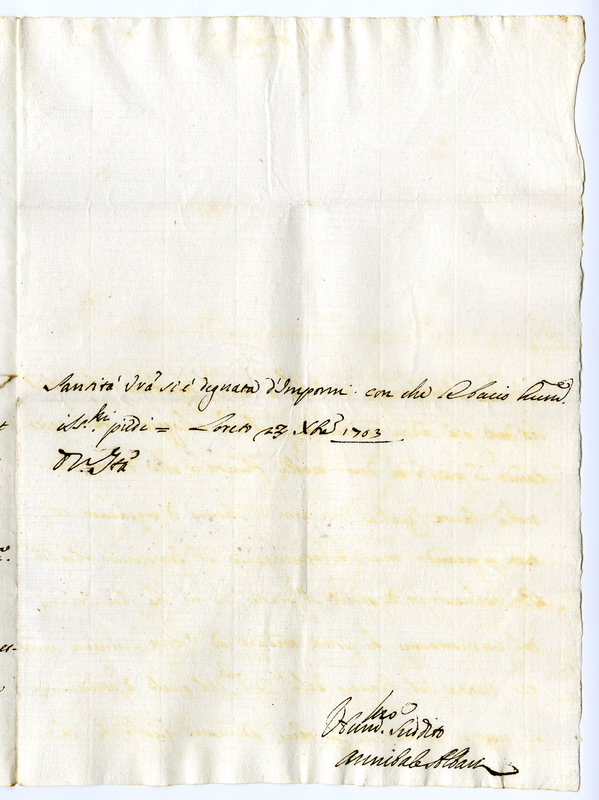 Santità Vrã si è degnata d'Impormi. con che le bacio hum.
iss.mi piedi = Loreto 23 Xbre 1703
D V. Stà
Hum.mo Suddito
Annibale Albani